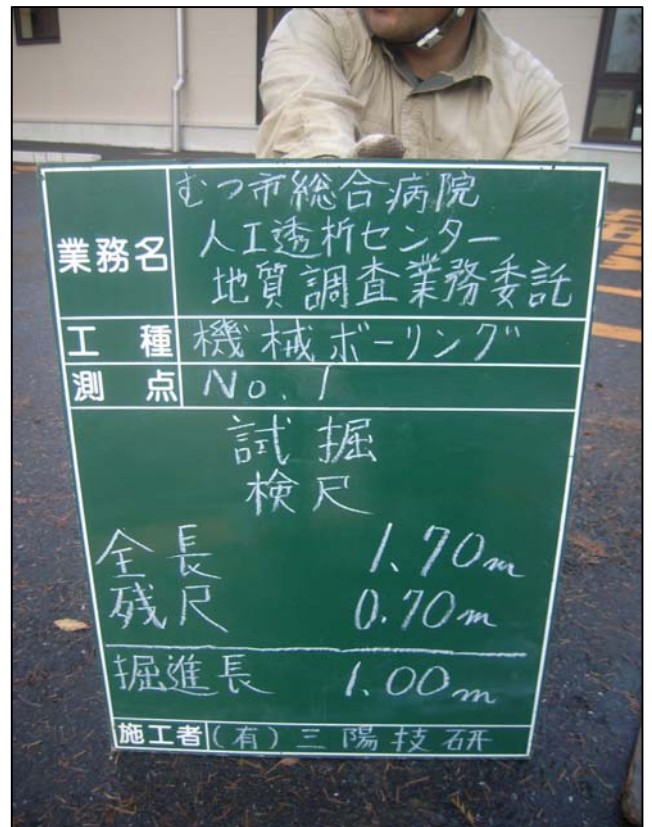 むつ市総合病院
業務名 人工透析センター
地質調査業務委託
工種 機械ボーリング
測点 No.1
試掘
検尺
全長 1.70m
残尺 0.70m
掘進長 1.00m
施工者 (有)三陽技研